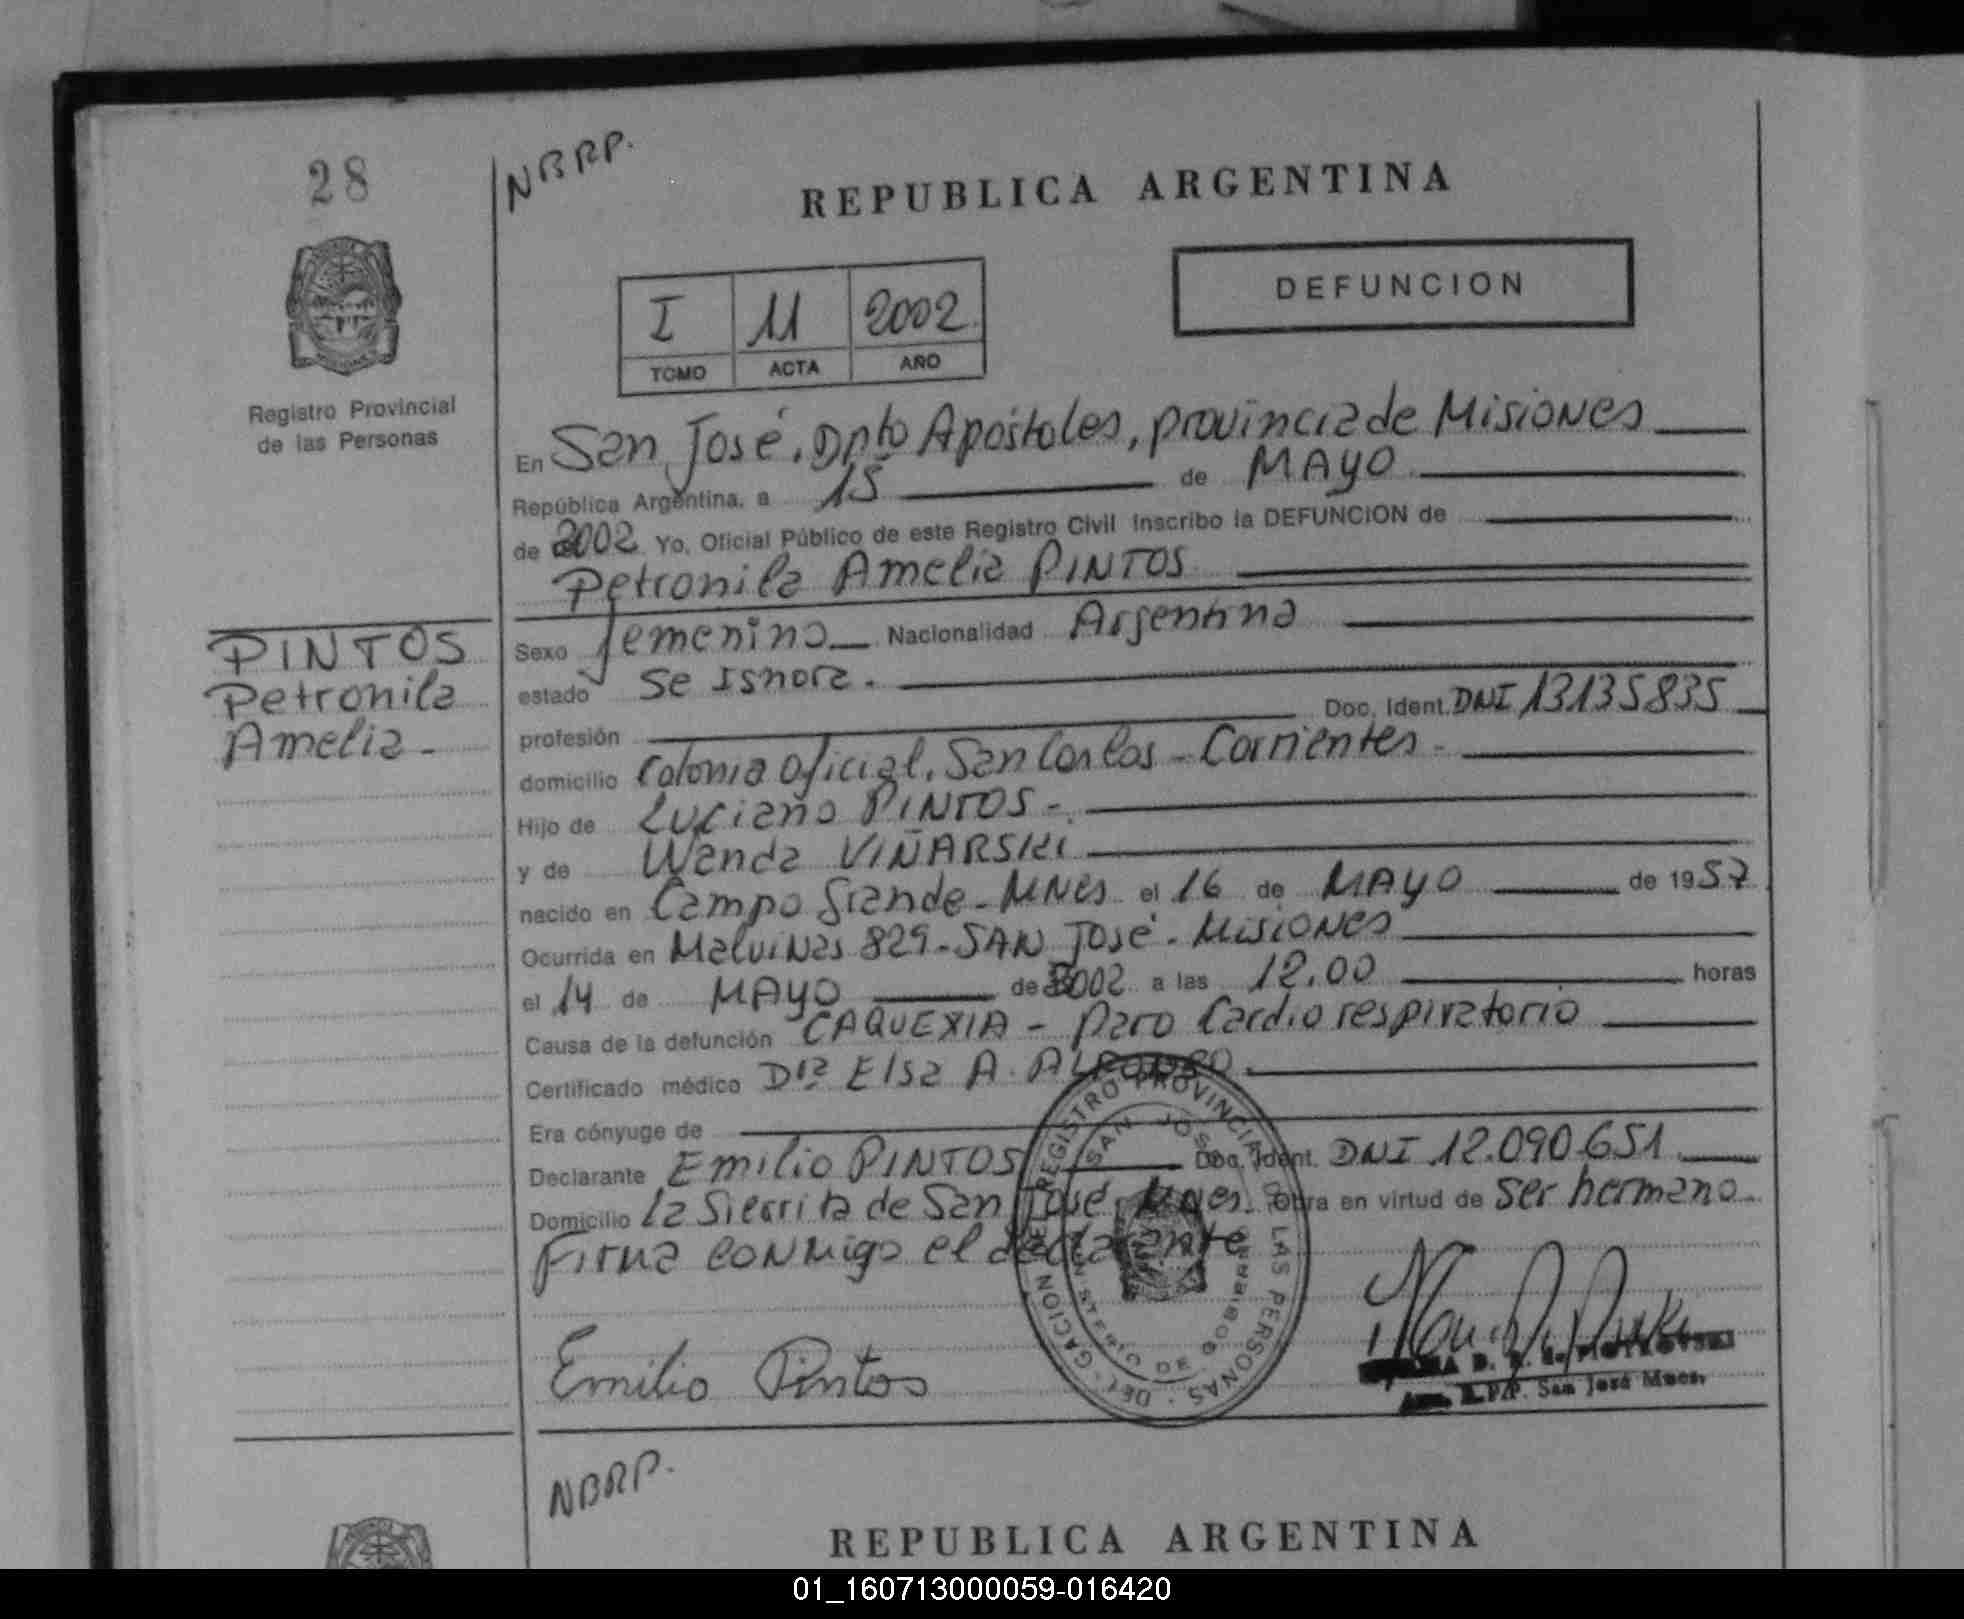 28
NBRP.
REPUBLICA ARGENTINA
DEFUNCION
I 11 2002
TOMO ACTA AÑO
Registro Provincial
de las Personas
En San José, Dpto Apóstoles, provincia de Misiones
República Argentina, a 15 de MAYO
de 2002 Yo, Oficial Público de este Registro Civil Inscribo la DEFUNCION de
Petronila Amelia PINTOS
PINTOS
Petronila
Amelia -
Sexo femenino Nacionalidad Argentina
estado Se Ignora.
profesión Doc. Ident. DNI 13135835
domicilio Colonia Oficial, San Carlos - Corrientes -
Hijo de Luciano PINTOS -
y de Wanda VIÑARSKI
nacido en Campo Grande - MNES el 16 de MAYO de 1957
Ocurrida en Malvinas 829 - SAN José - Misiones
el 14 de MAYO de 2002 a las 12.00 horas
Causa de la defunción CAQUEXIA - Paro Cardio respiratorio
Certificado médico Dra Elsa A.
Era cónyuge de
Declarante Emilio PINTOS Doc. Ident. DNI 12.090.651
Domicilio La Sierrita de San José, Mnes. Obra en virtud de ser hermano
Firma conmigo el declarante
Emilio Pintos
REGISTRO PROVINCIAL DE LAS PERSONAS
SAN JOSE
San José Mnes.
NBRP.
REPUBLICA ARGENTINA
01_160713000059-016420